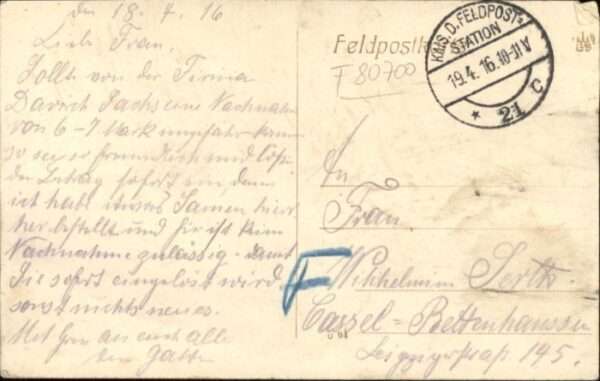 den 18. 4. 16
Liebe Frau.
Sollte von der Firma
David Sachs eine Nachnahme
von 6-7 Mark ungefähr kommen
so sei so freundlich und lös
den Betrag sofort ein denn
ich habe etwas Samen hier
her bestellt und hier ist kein
Nachnahme zulässig. damit
sie sofort eingelöst wird
sonst nichts neues.
Mit Gruß an euch alle
dein Gatte
Feldpostk
F 80700
KAIS. D. FELDPOST-
STATION
19.4.16.10-11V
* 21 C
An
Frau
F
Wilhelmine
Cassel-Bettenhausen
Leipzigerstraße 145.